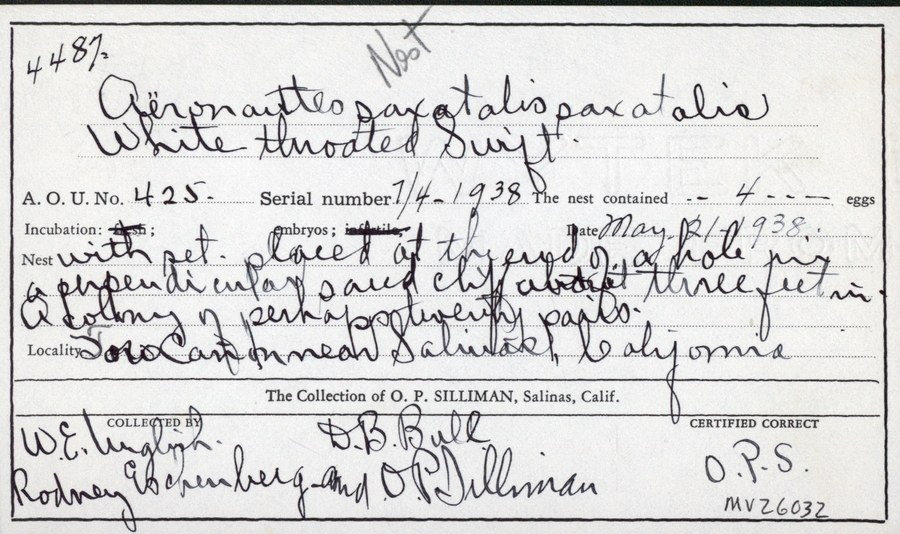 4487.
Nest
Aëronautes saxatalis saxatalis
White throated Swift
A. O. U. No. 425. Serial number 7/4-1938 The nest contained -- 4 ---- eggs
Incubation: fresh; embryos; infertile, Date May 21-1938.
Nest with set. placed at the end of a hole in
a perpendicular sand cliff about three feet in.
A colony of perhaps twenty pairs.
Locality Toro Canyon near Salinas, California
The Collection of O. P. SILLIMAN, Salinas, Calif.
COLLECTED BY CERTIFIED CORRECT
W.E. Unglish. D.B. Bull
Rodney Eschenberg and O.P. Silliman O.P.S.
MVZ6032